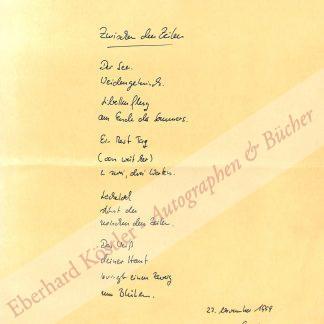 Zwischen den Zeilen
Der See.
Weidengebüsch.
Libellenflug
am Ende des Sommers.
Ein Rest Tag
(von weit her)
in zwei, drei Worten.
stehst du
zwischen den Zeilen.
Das Weiß
deiner Haut
bringt einen Zweig
zum Blühen.
27. November 1989
Eberhard Köstler - Autographen & Bücher